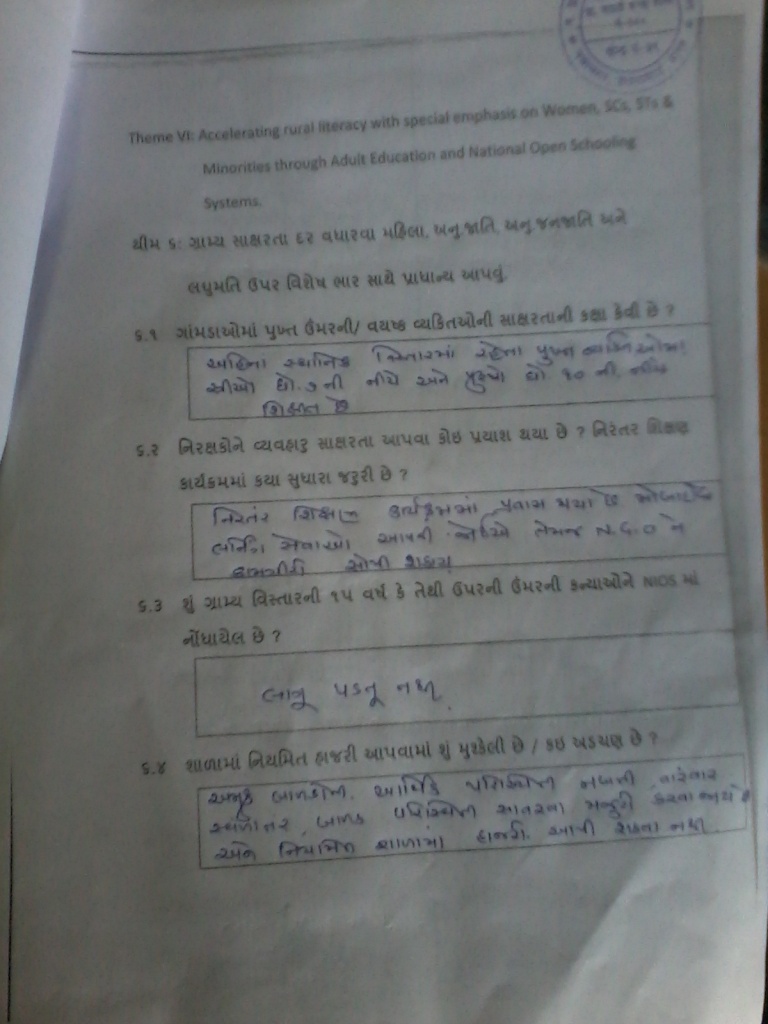 Theme VI: Accelerating rural literacy with special emphasis on Women, SCs, STs &
Minorities through Adult Education and National Open Schooling
Systems.
થીમ ૬: ગ્રામ્ય સાક્ષરતા દર વધારવા મહિલા, અનુ.જાતિ, અનુ.જનજાતિ અને
લઘુમતિ ઉપર વિશેષ ભાર સાથે પ્રાધાન્ય આપવું.
૬.૧ ગાંમડાઓમાં પુખ્ત ઉંમરની/ વયષ્ક વ્યકિતઓની સાક્ષરતાની કક્ષા કેવી છે ?
અહિંનાં સ્થાનિક વિસ્તારમાં રહેતા પુખ્ત વ્યક્તિઓમાં
સ્ત્રીઓ ધો.૭ ની નીચે અને પુરૂષો ધો ૧૦ ની નીચે
શિક્ષીત છે
૬.૨ નિરક્ષકોને વ્યવહારુ સાક્ષરતા આપવા કોઇ પ્રયાશ થયા છે ? નિરંતર શિક્ષણ
કાર્યક્રમમાં કયા સુધારા જરૂરી છે ?
નિરંતર શિક્ષણ કાર્યક્રમમાં પ્રયાસ થયા છે મોબાઈલ
લર્નિંગ સેવાઓ આપવી જોઈએ તેમજ N.G.O ને
કામગીરી સોંપી શકાય
૬.૩ શું ગ્રામ્ય વિસ્તારની ૧૫ વર્ષ કે તેથી ઉપરની ઉંમરની કન્યાઓને NIOS માં
નોંધાયેલ છે ?
લાગુ પડતુ નથી.
૬.૪ શાળામાં નિયમિત હાજરી આપવામાં શું મુશ્કેલી છે / કઇ અડચણ છે ?
અમુક બાળકોની આર્થિક પરિસ્થિતિ નબળી વારંવાર
સ્થળાંતર, બાળક પરિસ્થિતિ મજુરી કરવા જાય છે
અને નિયમિત શાળામાં હાજરી આપી શકતા નથી.